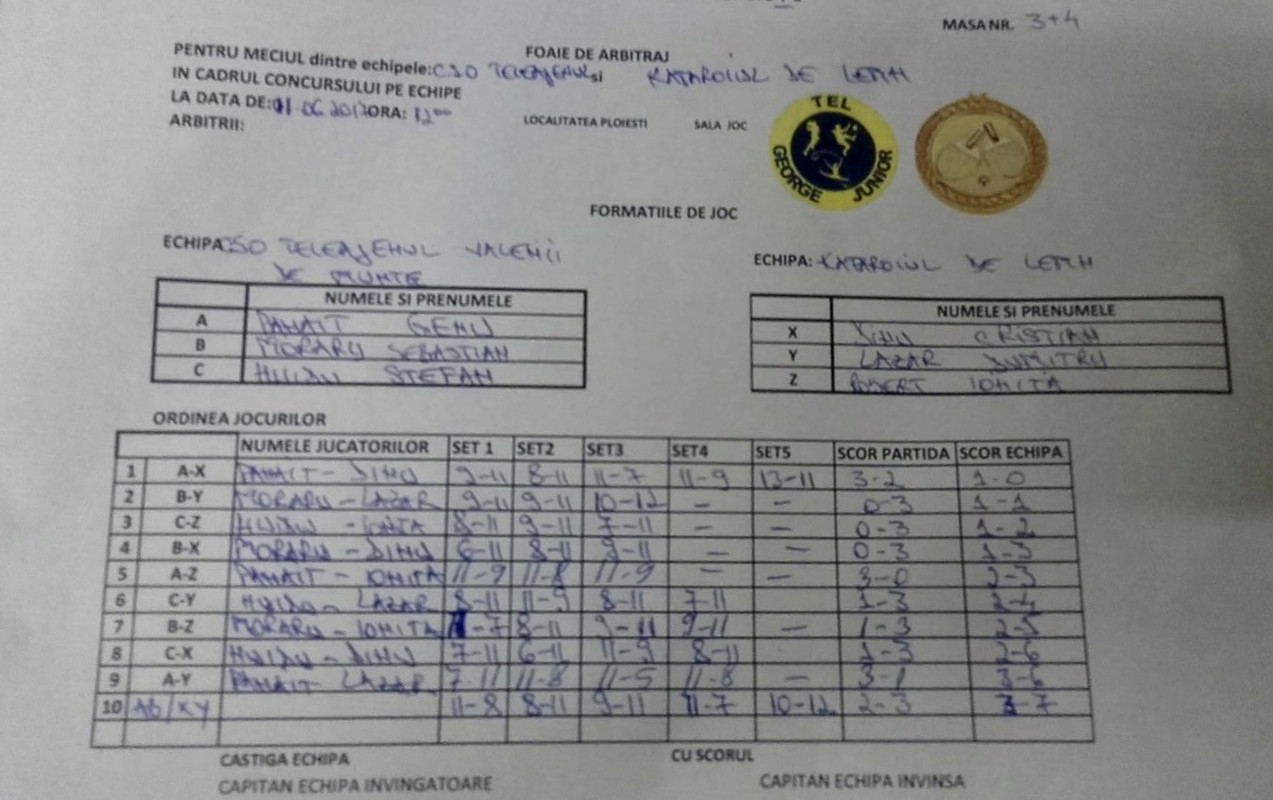 MASA NR. 3+4
FOAIE DE ARBITRAJ
PENTRU MECIUL dintre echipele: CSO TELEAJENUL si KATAROIUL DE LEMN
IN CADRUL CONCURSULUI PE ECHIPE
LA DATA DE: 11.06.2017 ORA: 12⁰⁰
ARBITRII:
LOCALITATEA PLOIESTI SALA JOC
TEL
GEORGE JUNIOR
FORMATIILE DE JOC
ECHIPA CSO TELEAJENUL VALENII
DE MUNTE
ECHIPA: KATAROIUL DE LEMN
NUMELE SI PRENUMELE
A PANAIT GENU
B MORARU SEBASTIAN
C HUIDU STEFAN
NUMELE SI PRENUMELE
X DINU CRISTIAN
Y LAZAR DUMITRU
Z ROBERT IONITA
ORDINEA JOCURILOR
NUMELE JUCATORILOR SET 1 SET2 SET3 SET4 SET5 SCOR PARTIDA SCOR ECHIPA
1 A-X PANAIT - DINU 9-11 8-11 11-7 11-9 13-11 3-2 1-0
2 B-Y MORARU - LAZAR 9-11 9-11 10-12 - - 0-3 1-1
3 C-Z HUIDU - IONITA 8-11 9-11 7-11 - - 0-3 1-2
4 B-X MORARU - DINU 6-11 8-11 9-11 - - 0-3 1-3
5 A-Z PANAIT - IONITA 11-9 11-8 11-9 - - 3-0 2-3
6 C-Y HUIDU - LAZAR 8-11 11-9 8-11 7-11 1-3 2-4
7 B-Z MORARU - IONITA 11-7 8-11 9-11 9-11 - 1-3 2-5
8 C-X HUIDU - DINU 7-11 6-11 11-9 8-11 1-3 2-6
9 A-Y PANAIT LAZAR 7-11 11-8 11-5 11-8 - 3-1 3-6
10 AB/XY 11-8 8-11 9-11 11-7 10-12 2-3 3-7
CASTIGA ECHIPA CU SCORUL
CAPITAN ECHIPA INVINGATOARE CAPITAN ECHIPA INVINSA